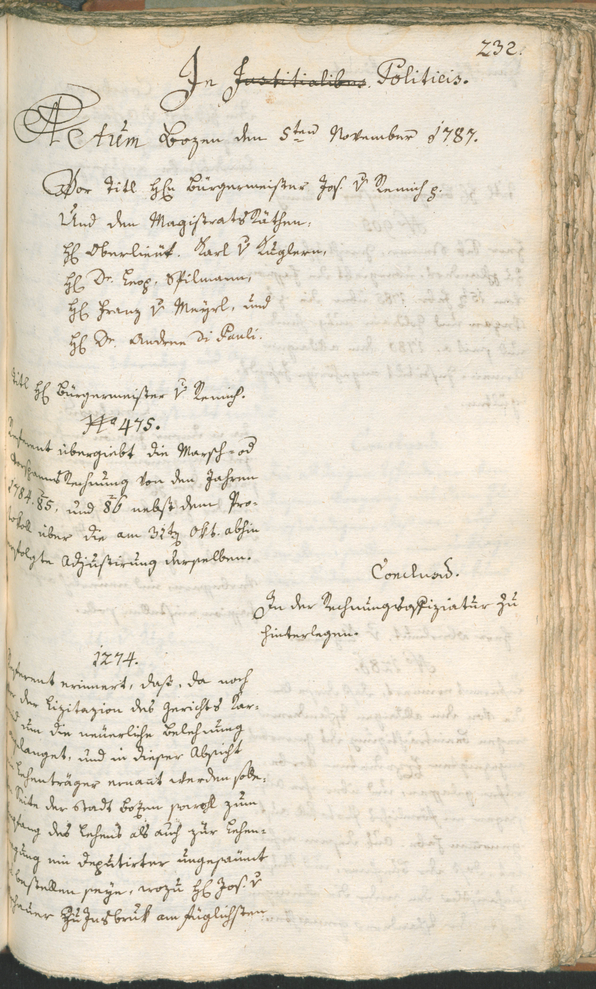 232.
In Justitialibus. Politicis.
Actum Bozen den 5ten November 1787.
Vor Titl H Bürgermeister Jos. v Remich p:
Und den Magistrats Räthen,
H Oberlieut. Karl v Kuglern,
H Dr. Leop. Spilmann,
H Franz v Meyrl, und
H Dr. Andree Di Pauli.
Titl H Bürgermeister v Remich.
No 475.
Referent übergiebt die Marsch- od
Vorspanns Rechnung von den Jahren
1784. 85. und 86 nebst dem Pro-
tokoll über die am 31ten Okt. abhin
erfolgte Adjustirung derselben.
Conclusum.
In der Rechnungsoffiziatur zu
hinterlegen.
1274.
Referent erinnert, daß, da noch
der Lizitazion des Gerichts Kar-
um die neuerliche Belehnung
gelanget, und in dieser Absicht
Lehenträger ernannt werden solle,
Seite der Stadt Bozen sowohl zum
des Lehens als auch zur Lehen-
ein Deputirter ungesäumt
bestellen seye, wozu H Jos. v
zu Insbruk am füglichsten